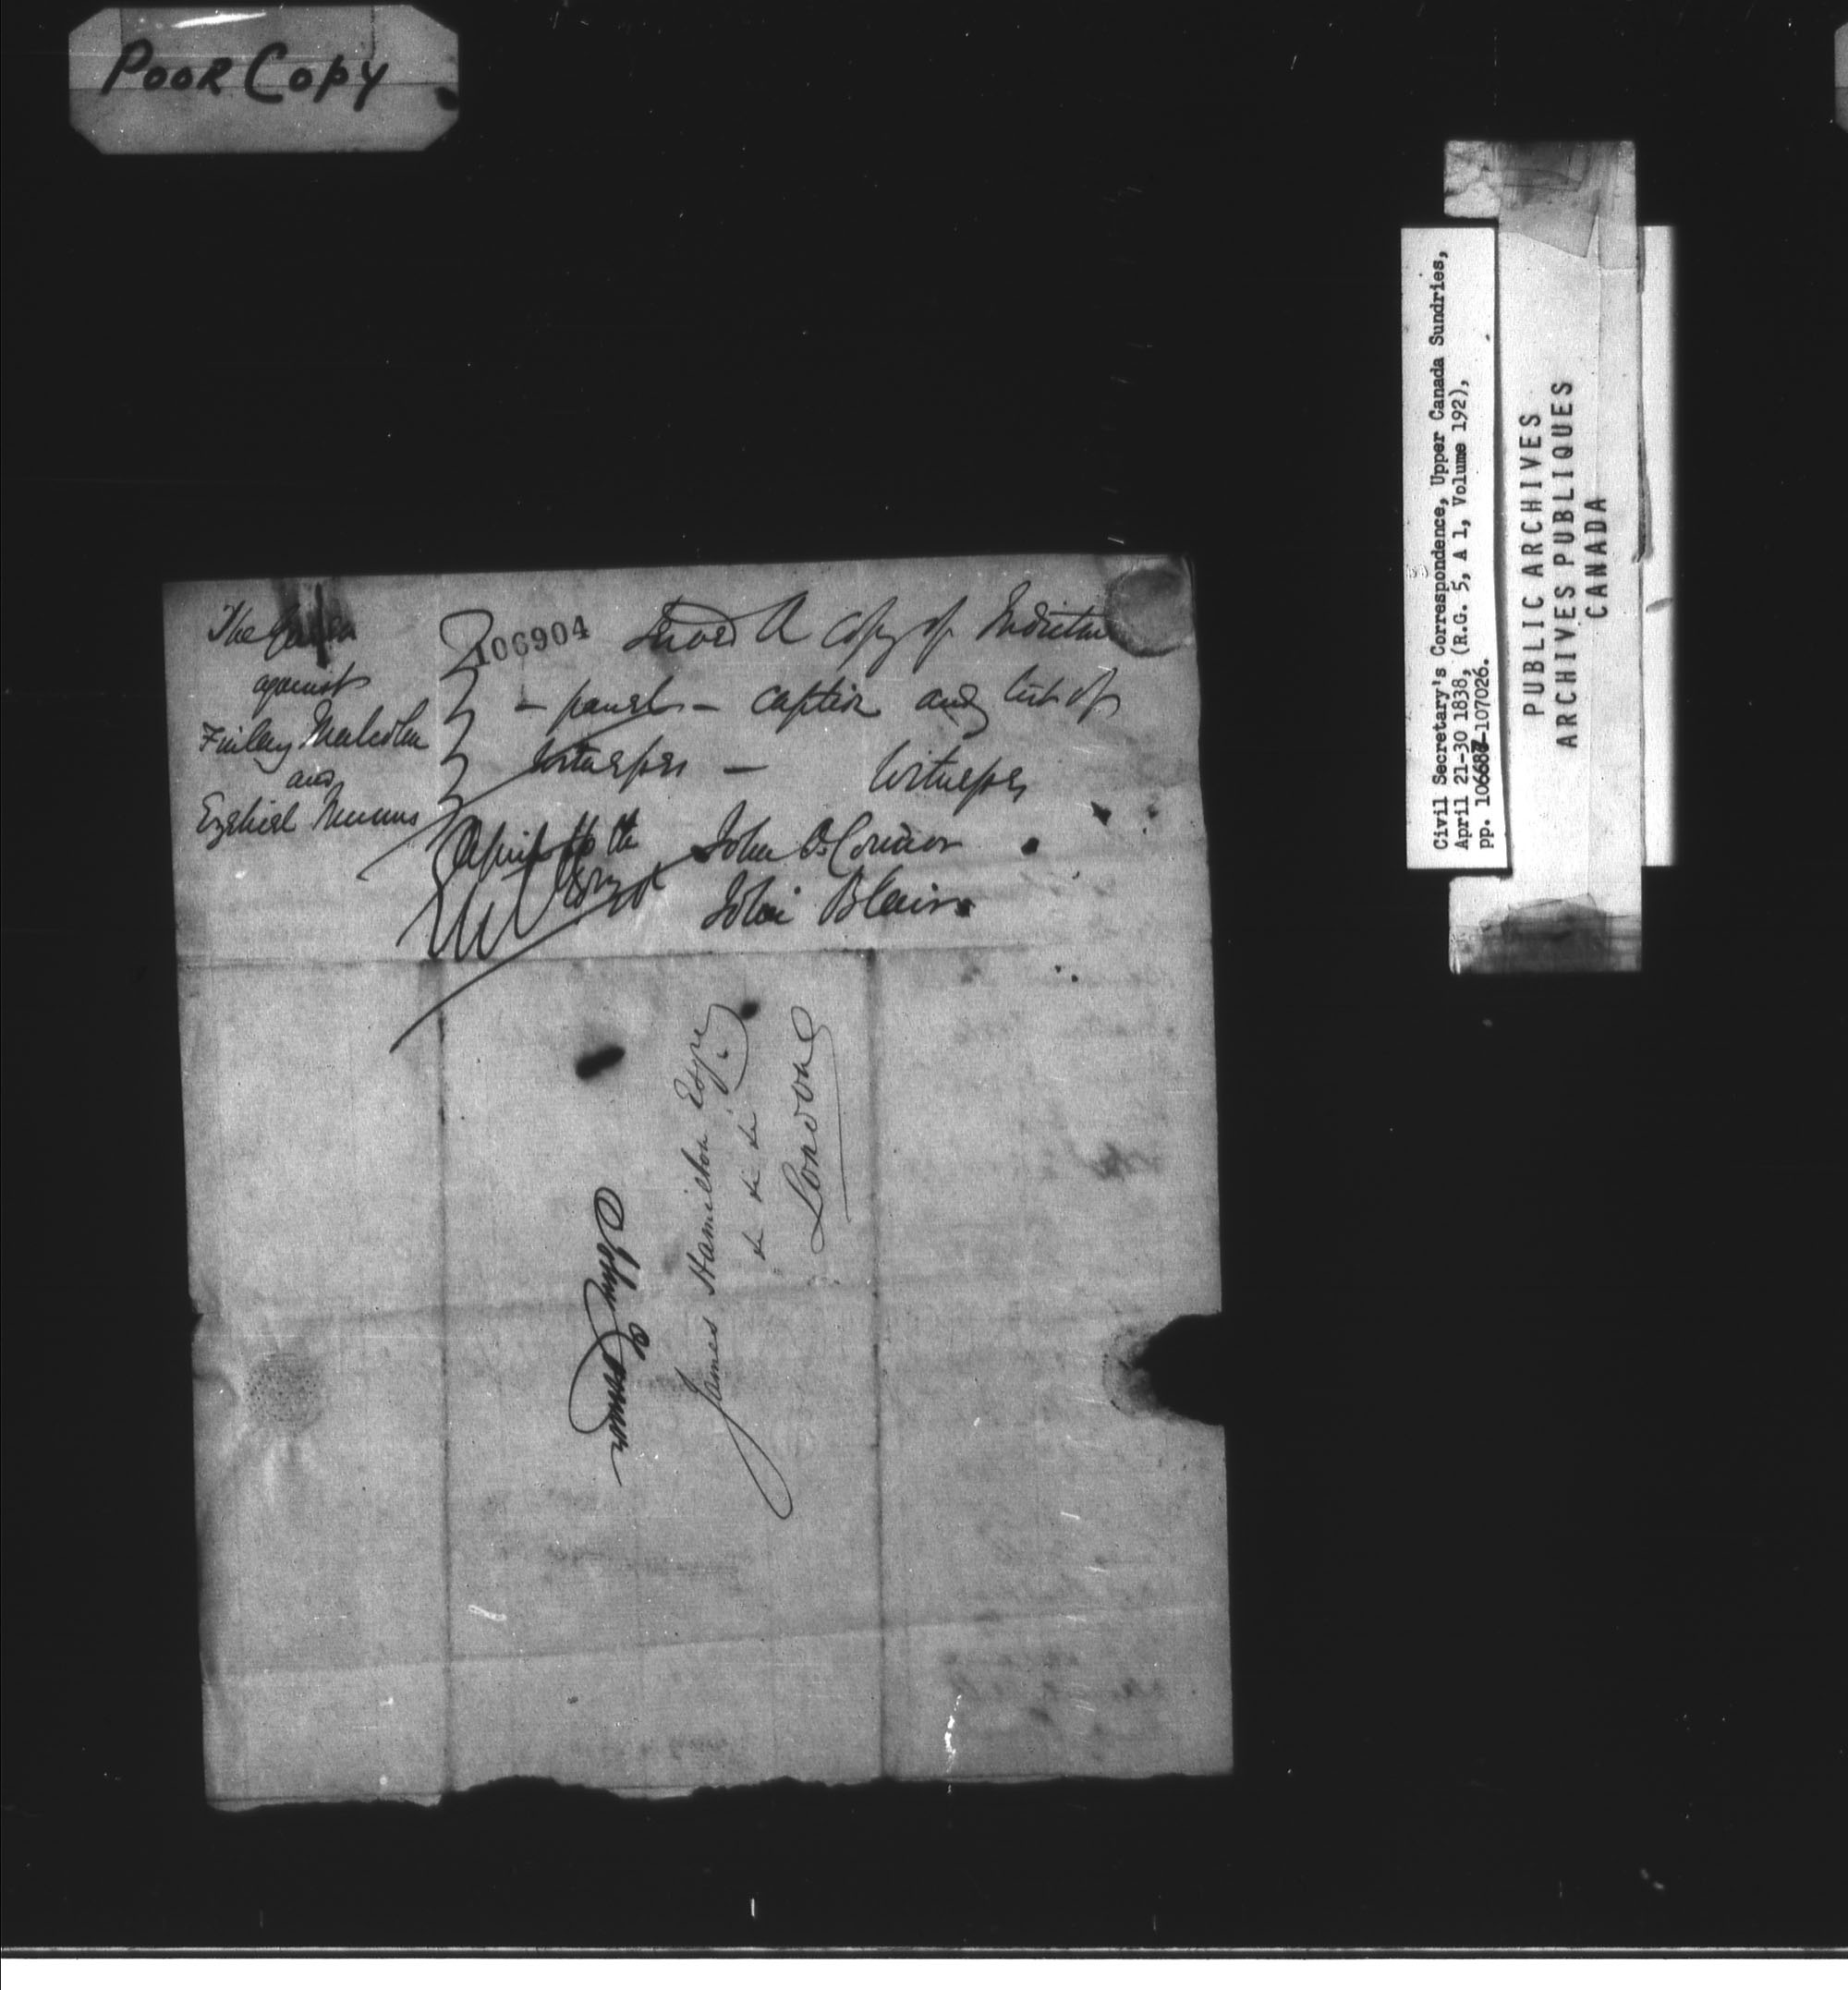 POOR COPY
The Queen
against
Finlay Malcolm
and
Ezekiel
106904
Served A copy of Indictm
- panel - caption and list of
Witnesses - Witnesses
April 16th John O'Connor
John Blair
James Hamilton Esqre
&c &c &c
London
John
Civil Secretary's Correspondence, Upper Canada Sundries,
April 21-30 1838, (R.G. 5, A 1, Volume 192),
pp. 106687-107026.
PUBLIC ARCHIVES
ARCHIVES PUBLIQUES
CANADA